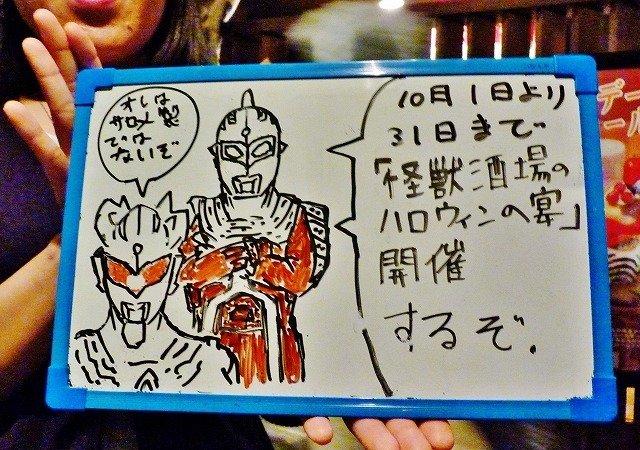 オレは
サロメ製
では
ないぞ
10月1日より
31日まで
「怪獣酒場の
ハロウィンの宴」
開催
するぞ.
デー
ール